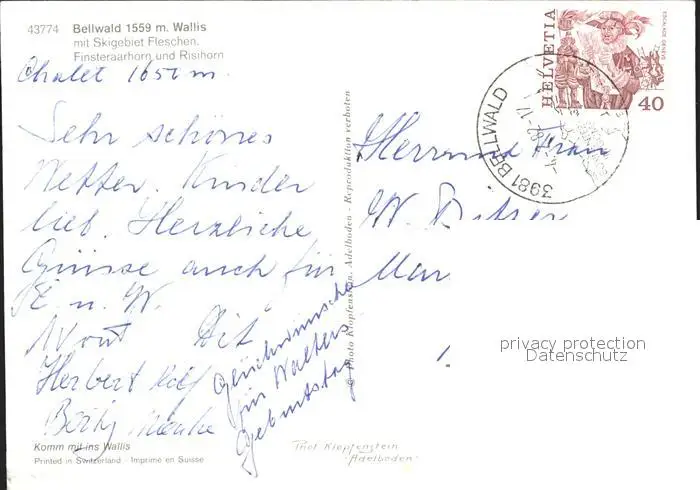 43774 Bellwald 1559 m. Wallis
mit Skigebiet Fleschen.
Finsteraarhorn und Risihorn
Chalet 1650 m.
Sehr schönes
Wetter. Kinder
lieb. Herzliche
Grüsse auch für
E. u. W.
Herbert
Glückwünsche
für Walters
Geburtstag
Komm mit ins Wallis
Printed in Switzerland · Imprimé en Suisse
© Photo Klopfenstein, Adelboden - Reproduktion verboten
Phot Klopfenstein
Adelboden
HELVETIA
ESCALADE GENÈVE
40
3981 BELLWALD
Herr und Frau
W.
privacy protection
Datenschutz